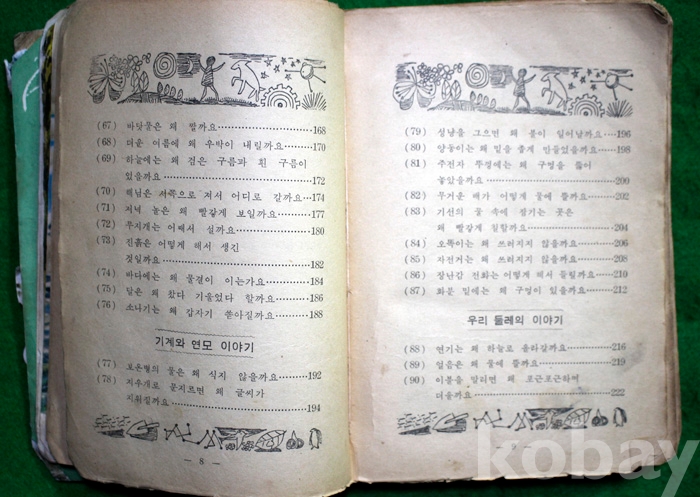 (67) 바닷물은 왜 짤까요 168
(68) 더운 여름에 왜 우박이 내릴까요 170
(69) 하늘에는 왜 검은 구름과 흰 구름이
있을까요 172
(70) 해님은 서쪽으로 져서 어디로 갈까요 174
(71) 저녁 놀은 왜 빨갛게 보일까요 177
(72) 무지개는 어째서 설까요 180
(73) 진흙은 어떻게 해서 생긴
것일까요 182
(74) 바다에는 왜 물결이 이는가요 184
(75) 달은 왜 찼다 기울었다 할까요 186
(76) 소나기는 왜 갑자기 쏟아질까요 188
기계와 연모 이야기
(77) 보온병의 물은 왜 식지 않을까요 192
(78) 지우개로 문지르면 왜 글씨가
지워질까요 194
— 8 —
(79) 성냥을 그으면 왜 불이 일어날까요 196
(80) 양동이는 왜 밑을 좁게 만들었을까요 198
(81) 주전자 뚜껑에는 왜 구멍을 뚫어
놓았을까요 200
(82) 무거운 배가 어떻게 물에 뜰까요 202
(83) 기선의 물 속에 잠기는 곳은
왜 빨갛게 칠할까요 204
(84) 오뚝이는 왜 쓰러지지 않을까요 206
(85) 자전거는 왜 쓰러지지 않을까요 208
(86) 장난감 전화는 어떻게 해서 들릴까요 210
(87) 화분 밑에는 왜 구멍이 있을까요 212
우리 둘레의 이야기
(88) 연기는 왜 하늘로 올라갈까요 216
(89) 얼음은 왜 물에 뜰까요 219
(90) 이불을 말리면 왜 포근포근하여
더울까요 222
kobay